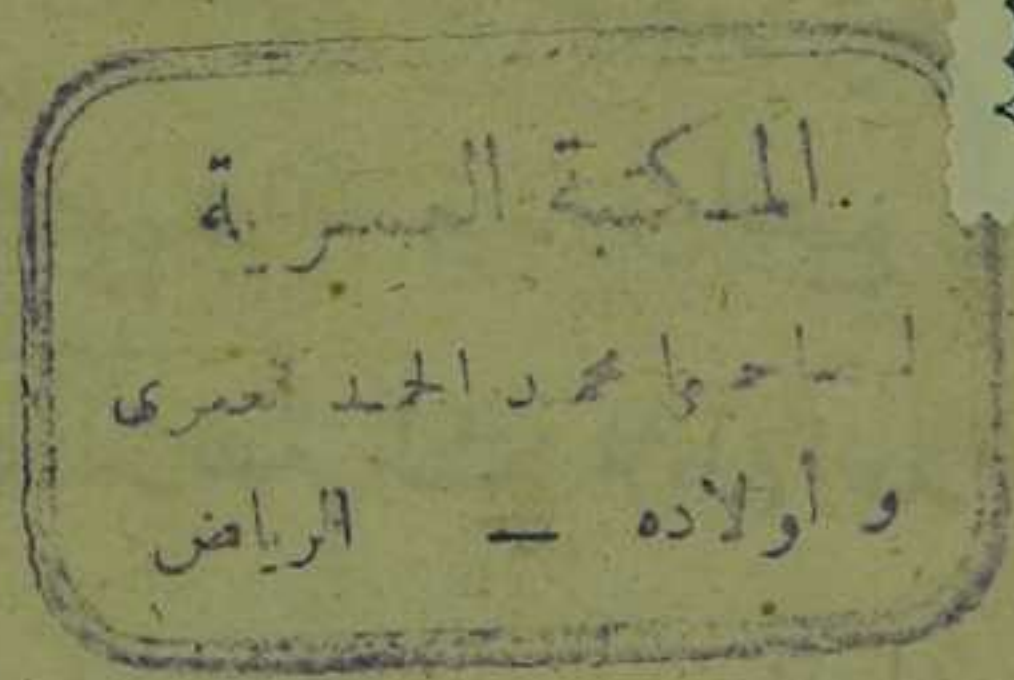 المكتبة العمرية
لصاحبها محمد الحمد العمرى
وأولاده — الرياض